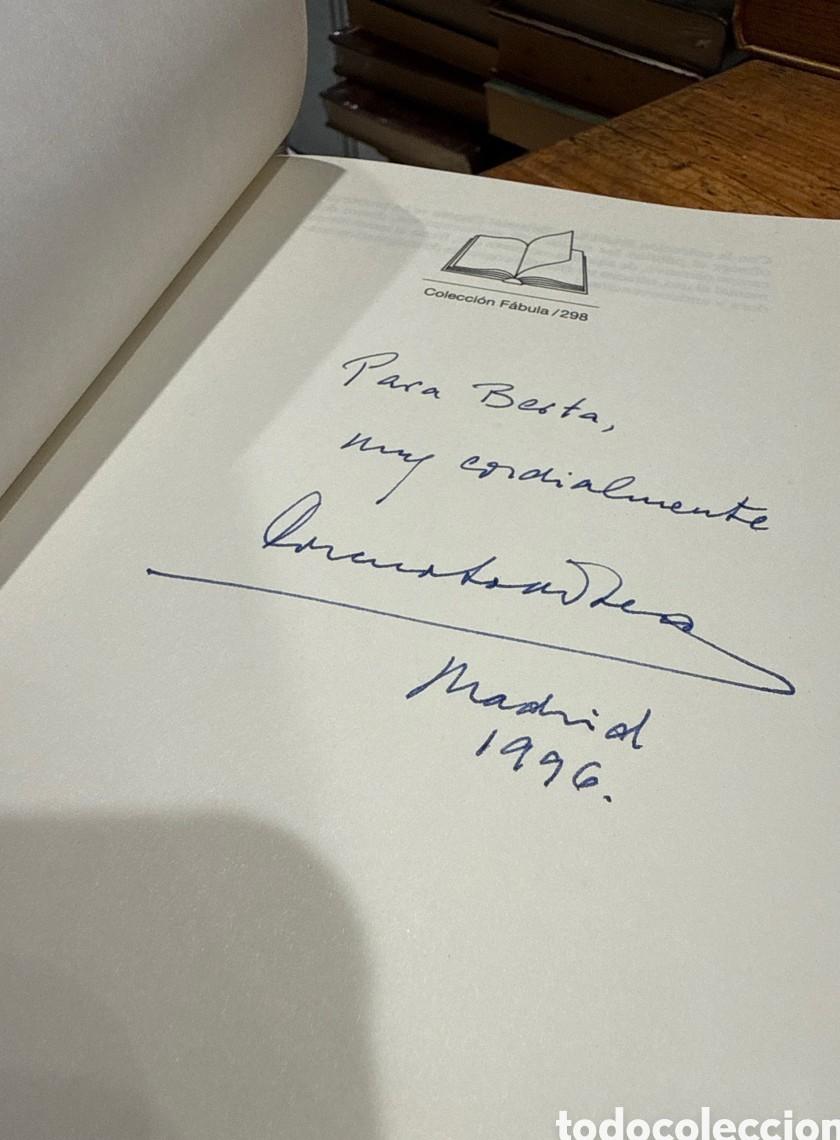 Colección Fábula / 298
Para Berta,
muy cordialmente
Madrid
1996.
todocoleccion